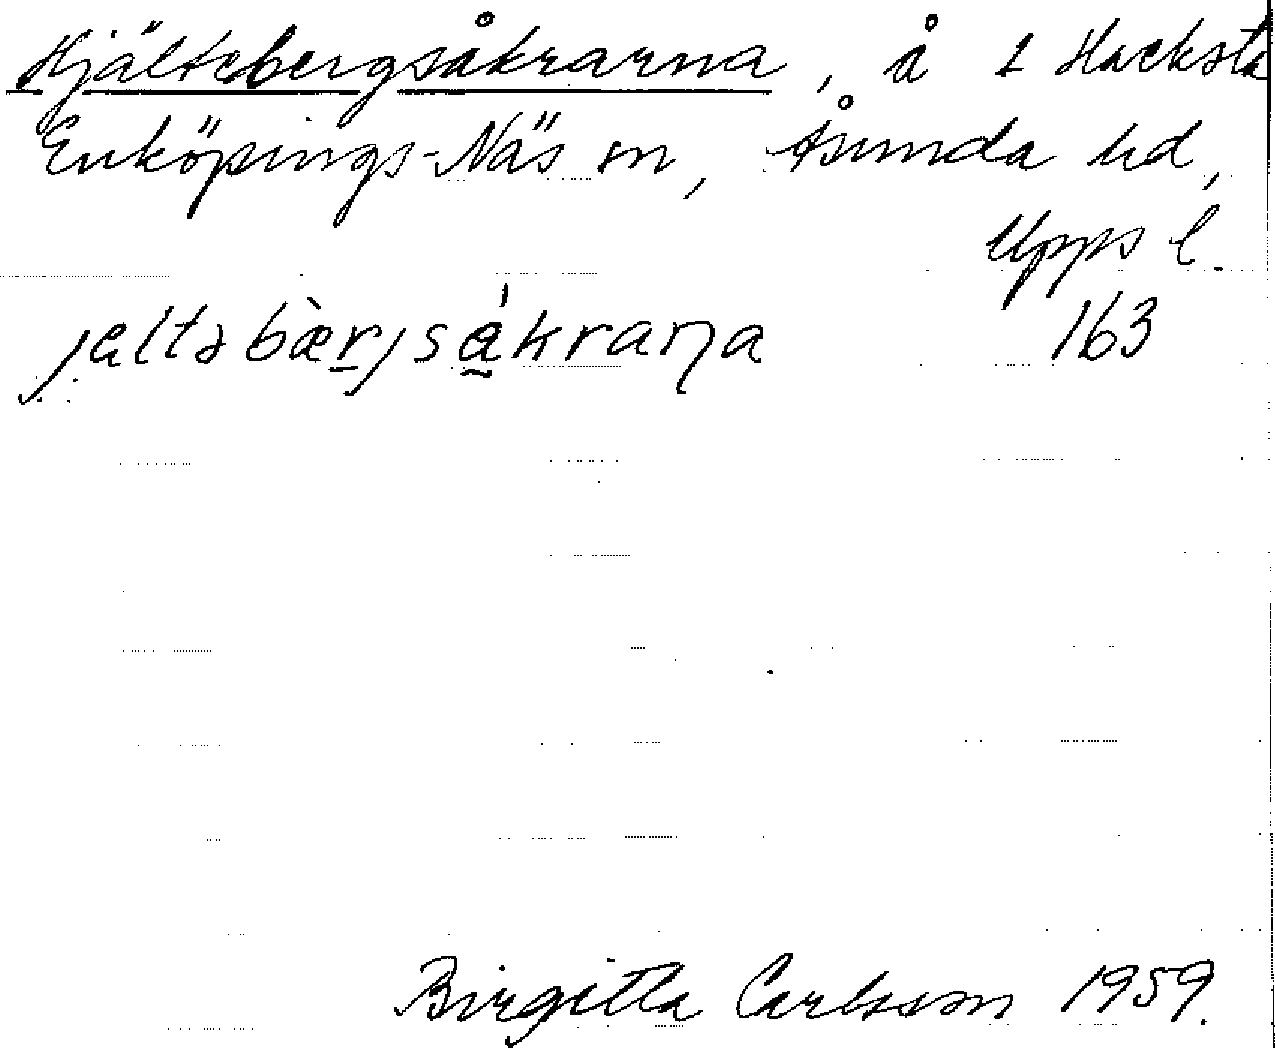 Hjältebergsåkrarna, å 1 Hacksta
Enköpings-Näs sn, Åsunda hd,
Upps l.
jæltəbæ̀rjså̀kraɳa 163
Birgitta Carlsson 1959.